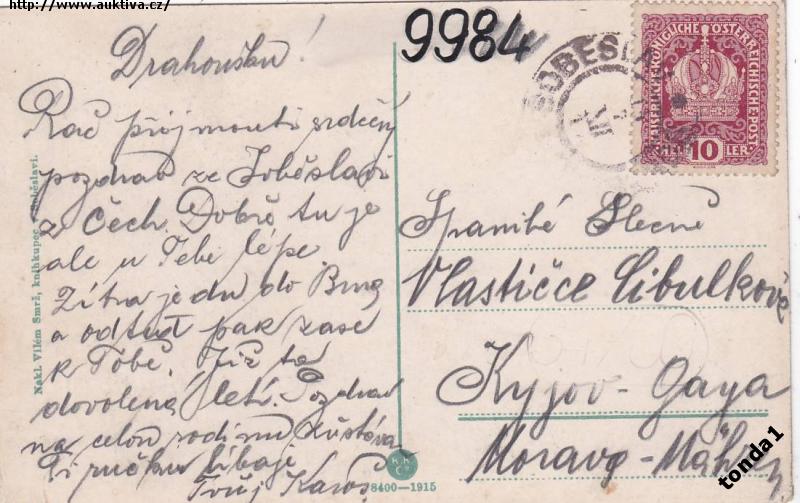 http://www.auktiva.cz/
9984
Drahoušku!
Rač přijmouti srdečný
pozdrav ze Soběslavi
z Čech. Dobře tu je
ale u Tebe lépe
Zítra jedu do Brna
a odtud pak zase
k Tobě. Již ta
dovolená letí. Pozdrav
na celou rodinu zůstává
Ti ručku líbaje
Tvůj Karoš
Nakl. Vilém Smrž, knihkupec v Soběslavi.
8400-1915
SOBĚSLAV
KAISERLICHE KÖNIGLICHE ÖSTERREICHISCHE POST
HELLER
10
Slečně
Vlastičce Cibulkové
Kyjov-Gaya
Morava-Mähren
tonda1